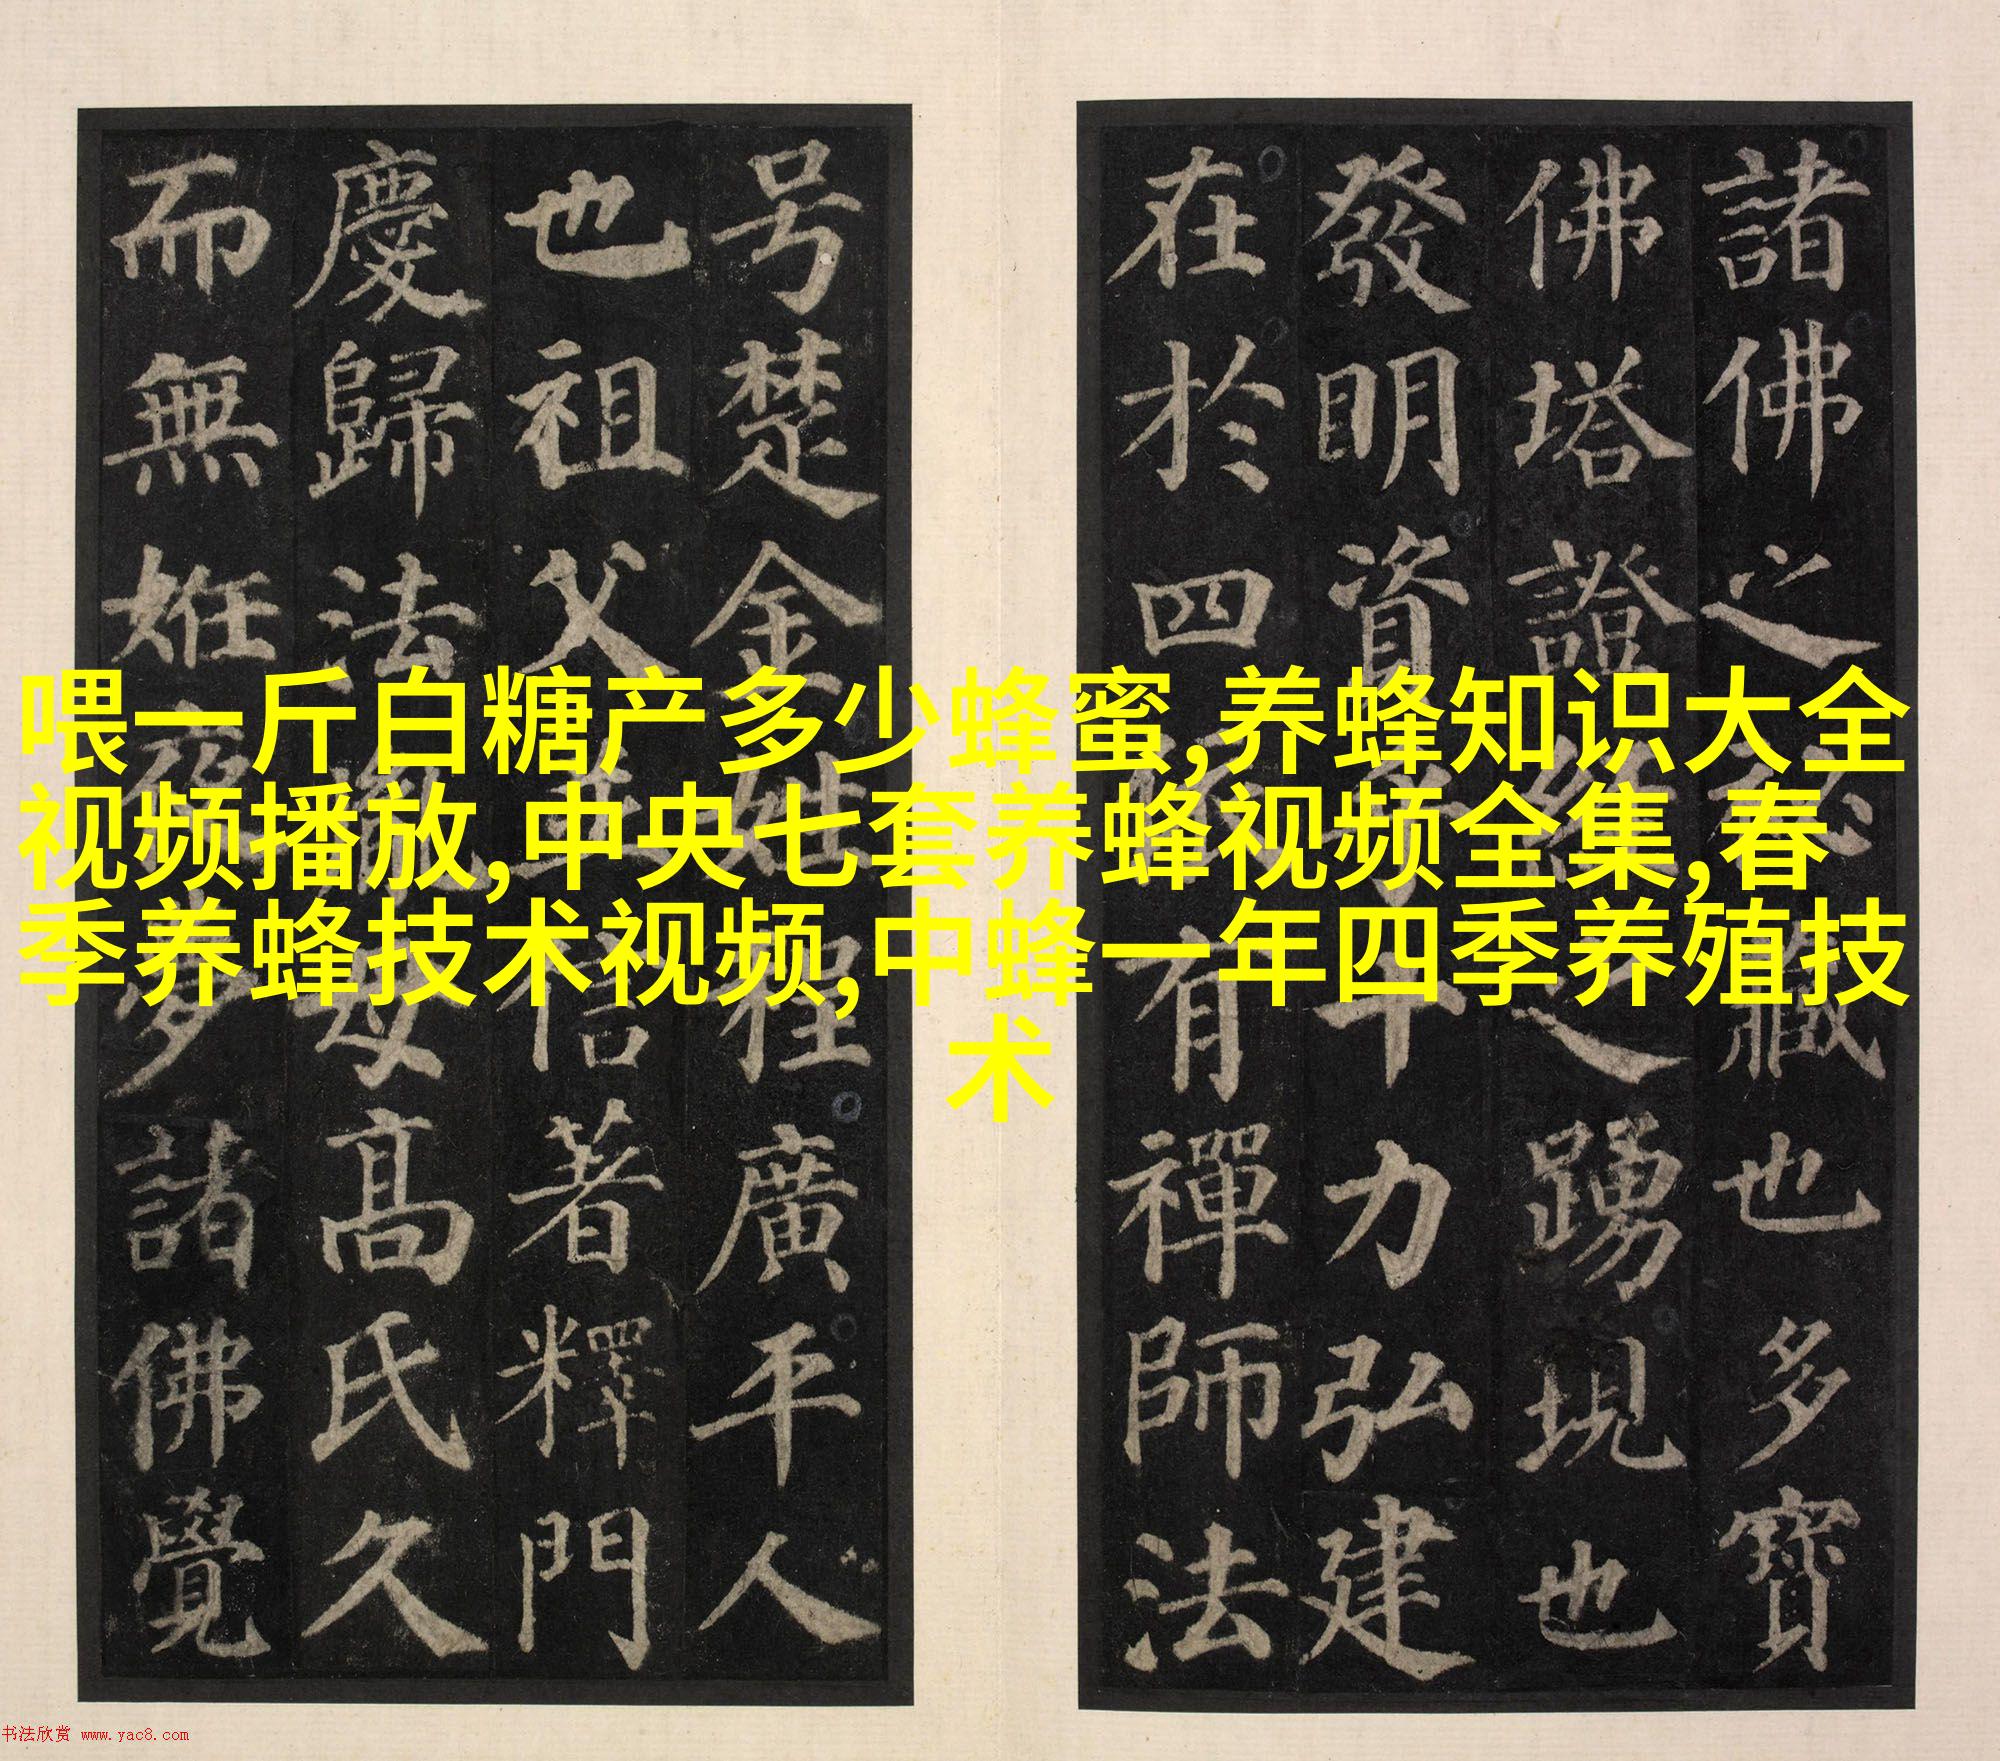 喂一斤白糖产多少蜂蜜,养蜂知识大全
视频播放,中央七套养蜂视频全集,春
季养蜂技术视频,中蜂一年四季养殖技
术
諸佛之秘藏也多寶
佛塔證經之踴現也
發明資乎十力弘建
在於四依有禪師法
号楚金姓程廣平人
也祖父並信著釋門
慶歸法胤母高氏久
而無姙夜夢諸佛覺
书法欣赏 www.yac8.com